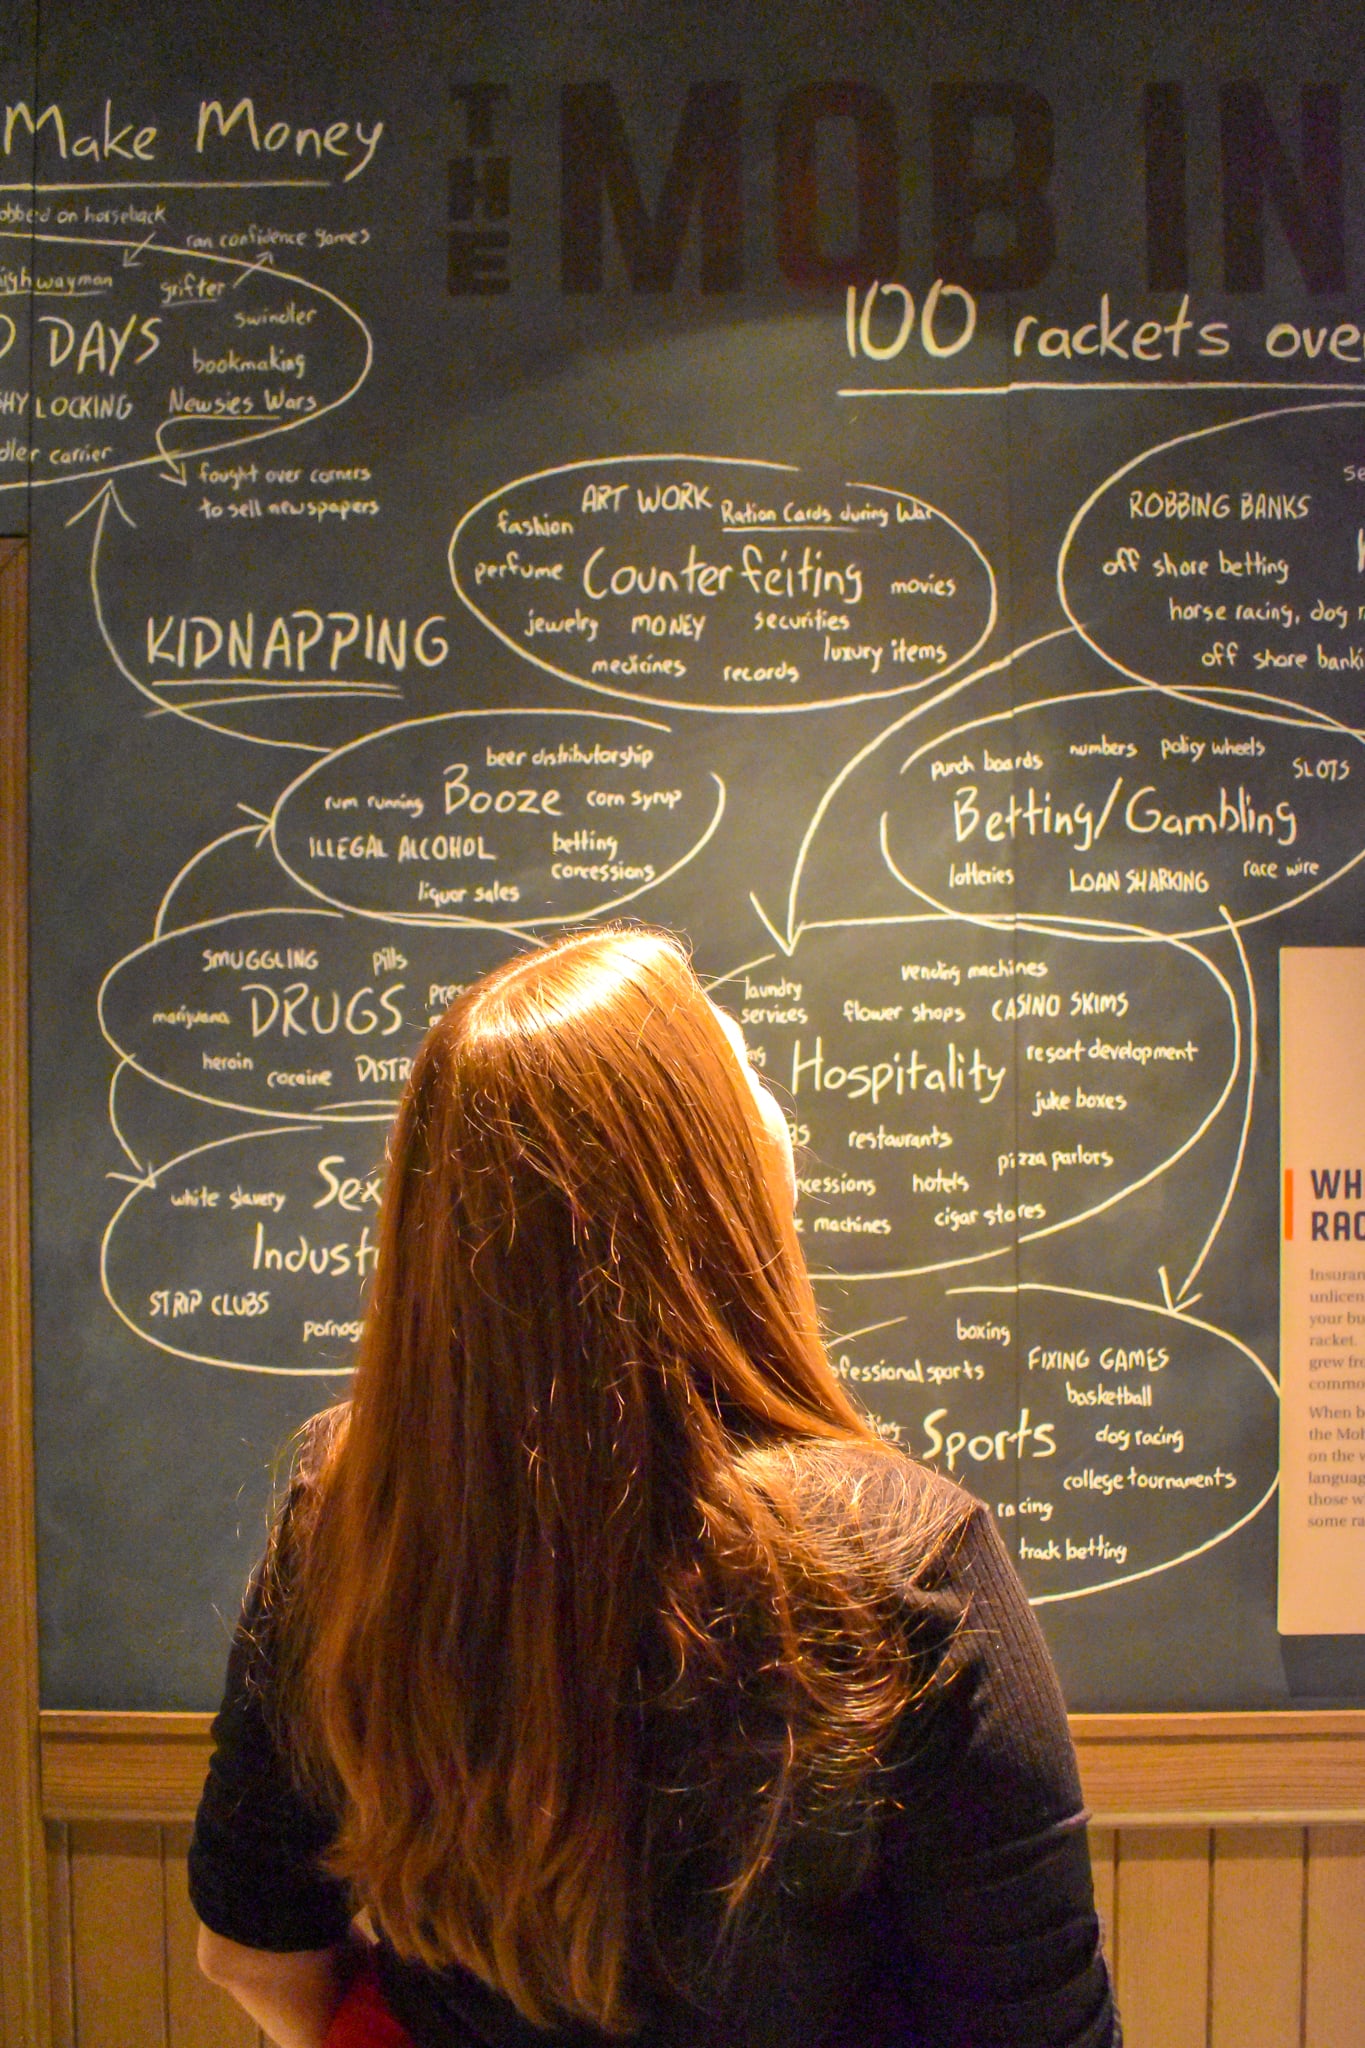 Make Money
THE MOB IN
on horseback
ran confidence games
grifter
swindler
DAYS
bookmaking
LOCKING
Newsies Wars
carrier
fought over corners
to sell newspapers
100 rackets
KIDNAPPING
ART WORK
Ration Cards during War
fashion
perfume
Counterfeiting
movies
jewelry
MONEY
securities
luxury items
medicines
records
ROBBING BANKS
off shore betting
horse racing, dog
off shore
beer distributorship
rum running
Booze
corn syrup
ILLEGAL ALCOHOL
betting
concessions
liquor sales
punch boards
numbers
policy wheels
SLOTS
Betting/Gambling
lotteries
LOAN SHARKING
race wire
SMUGGLING
pills
marijuana
DRUGS
heroin
cocaine
laundry
services
vending machines
flower shops
CASINO SKIMS
Hospitality
resort development
juke boxes
restaurants
pizza parlors
hotels
machines
cigar stores
white slavery
Sex
STRIP CLUBS
boxing
sports
FIXING GAMES
basketball
Sports
dog racing
college tournaments
racing
track betting
your
racket.
When
the
on the
those
some